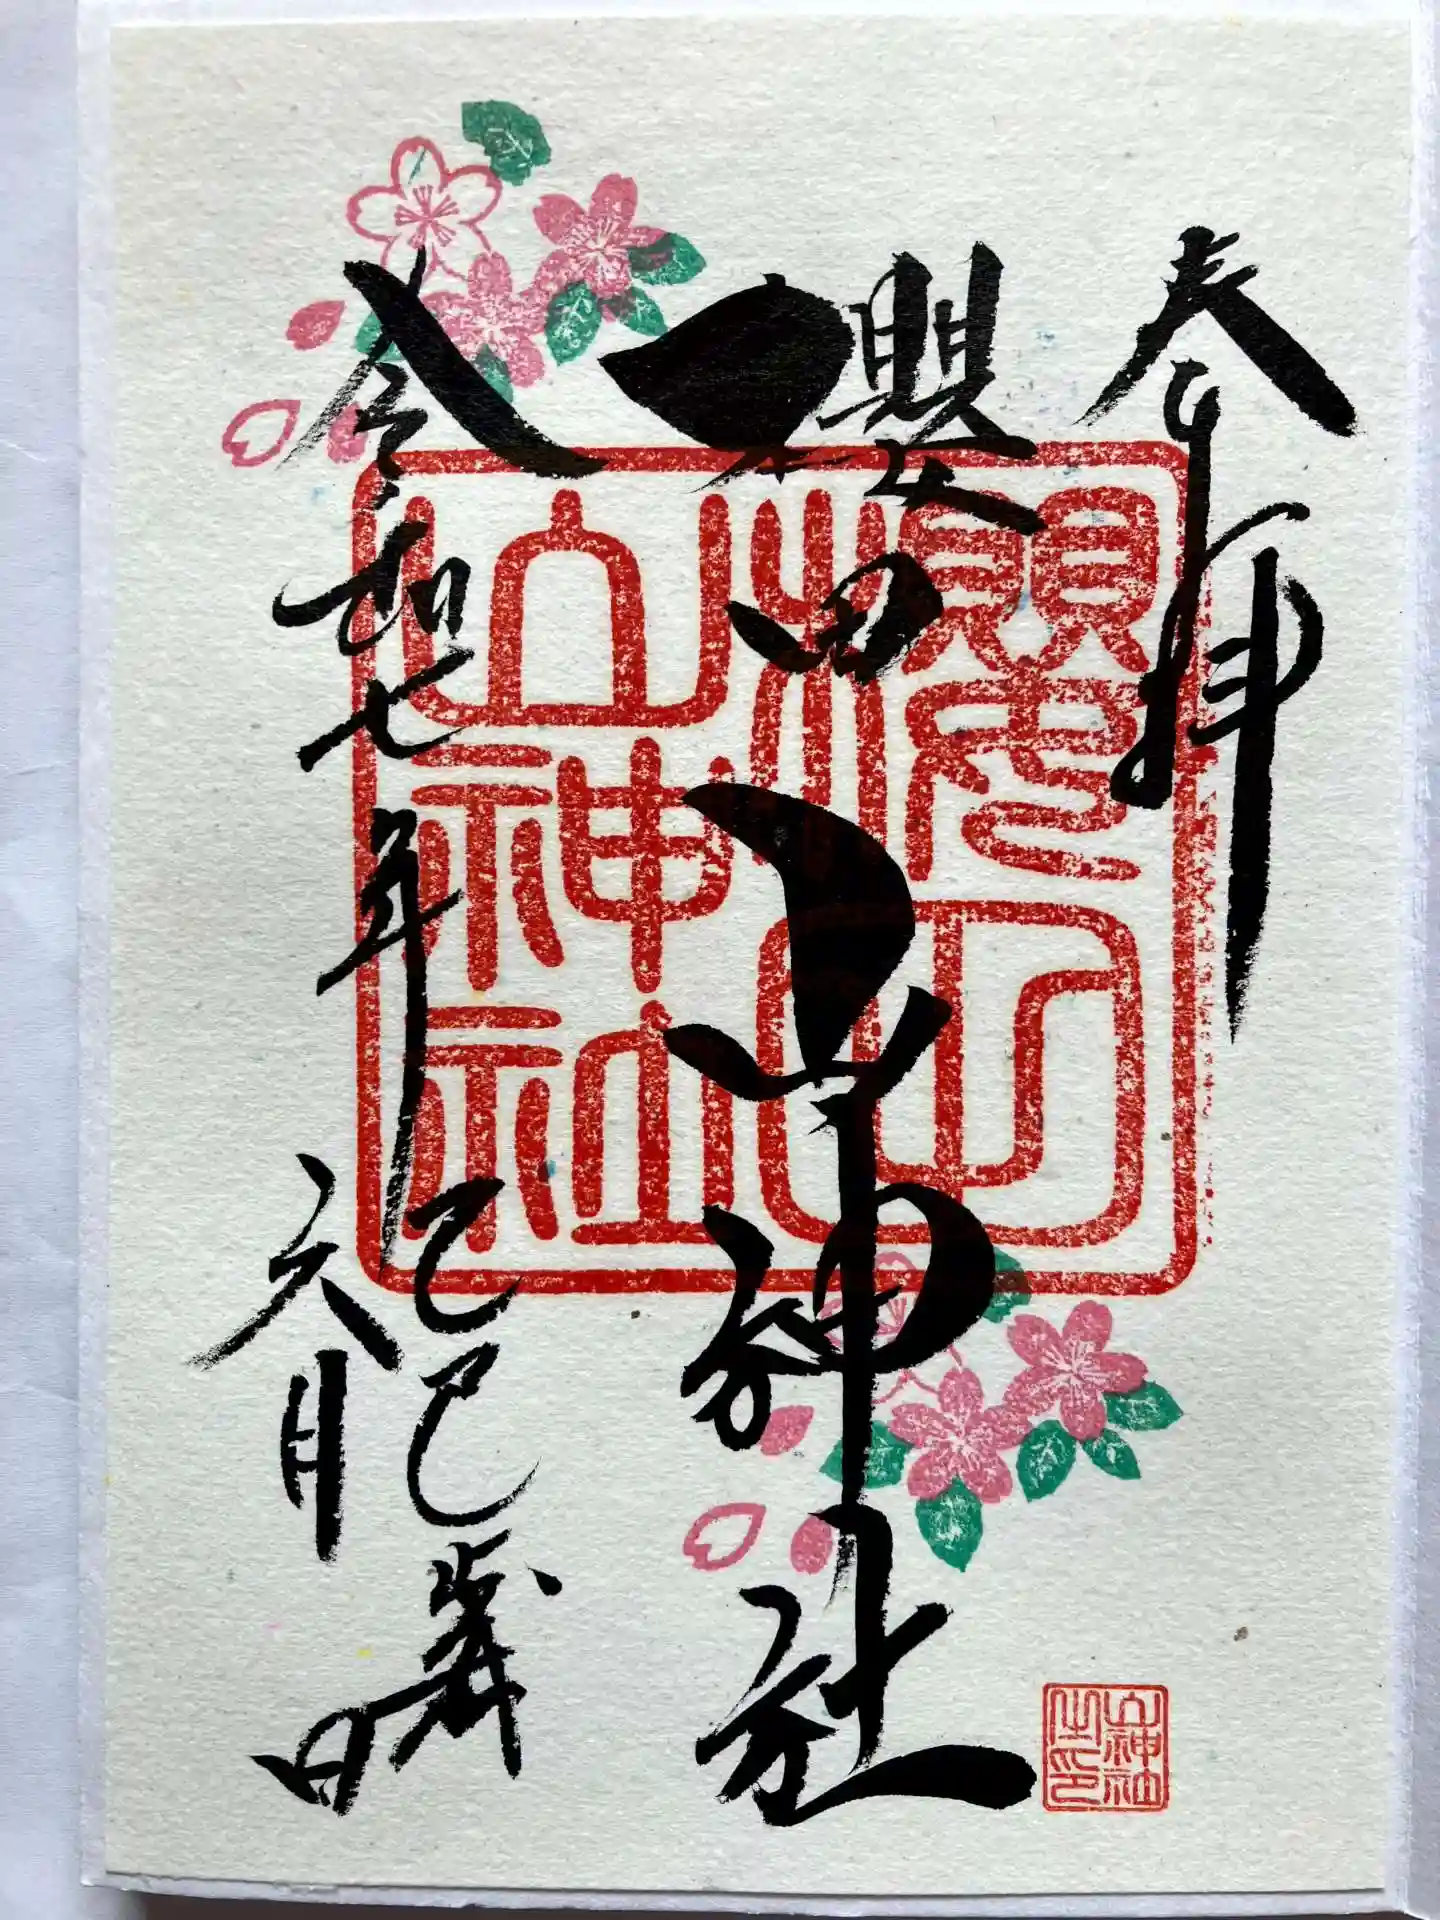 奉拝
櫻田山神社
令和七年乙巳歳
六月 日
櫻田
山神社
山神社
之印